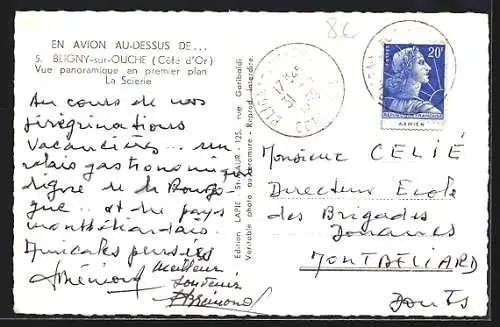 8C
EN AVION AU-DESSUS DE...
5. BLIGNY-sur-OUCHE (Côte d'Or)
Vue panoramique en premier plan
La Scierie
Au cours de nos
pérégrinations
vacancières... un
relais gastronomique
digne de la Bourgo-
gne... et du pays
montbéliardais.
Amicales pensées
meilleur
souvenir
Edition LAPIE St-MAUR - 125, Avenue Garibaldi
Véritable photo au bromure - Reprod. interdite.
BLIGNY
17H45
31
20F
REPUBLIQUE FRANÇAISE
Monsieur CELIÉ
Directeur Ecole
des Brigades
Douanes
MONTBÉLIARD
Doubs